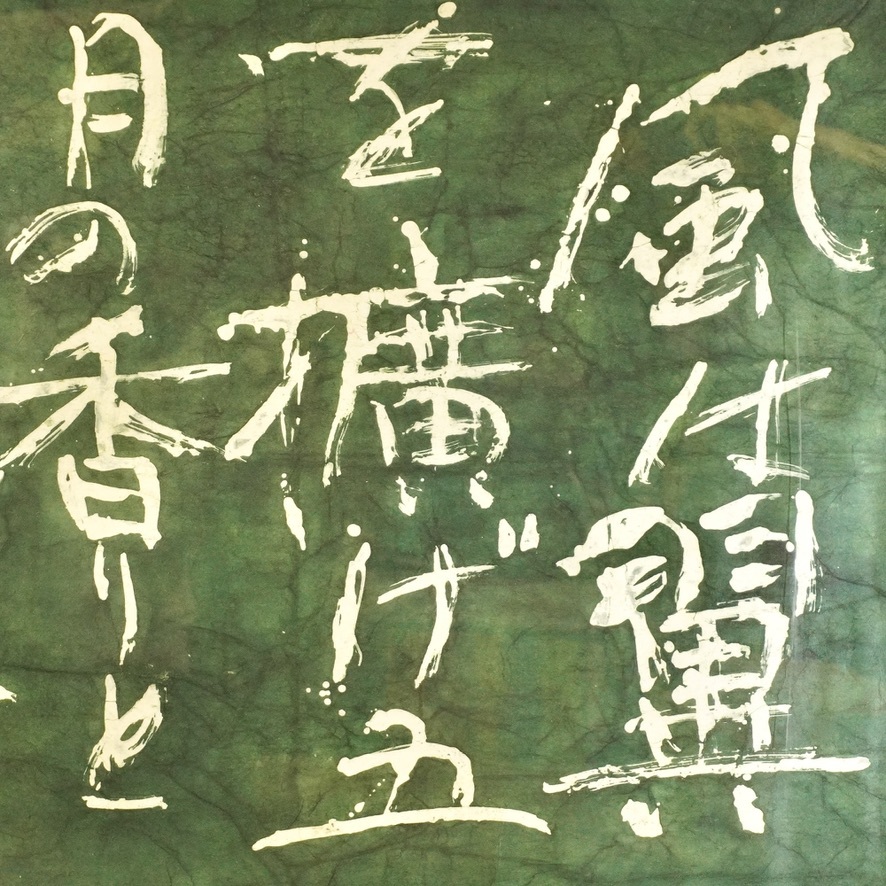 風は翼
を擴げ五
月の香りと